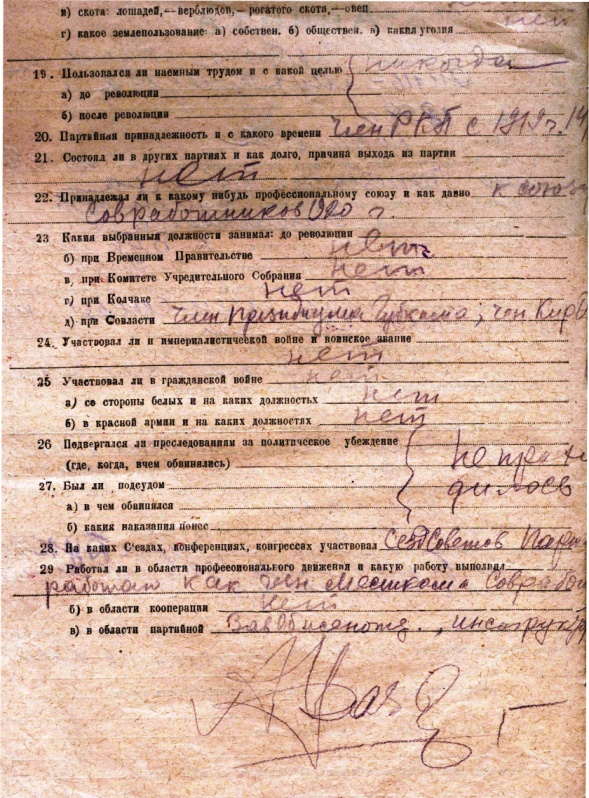 в) скота: лошадей,—верблюдов,—рогатого скота,—овец
нет
г) какое землепользование: а) собствен. б) обществен. в) какия угодия
19. Пользовался ли наемным трудом и с какой целью никогда
а) до революции
б) после революции
20. Партийная принадлежность и с какого времени член РКП с 1919 г.
21. Состоял ли в других партиях и как долго, причина выхода из партии
нет
22. Принадлежал ли к какому нибудь профессиональному союзу и как давно к союзу
Совработников 920 г.
23 Какия выбранныя должности занимал: до революции нет
б) при Временном Правительстве нет
в, при Комитете Учредительного Собрания нет
г) при Колчаке нет
д) при Совласти член президиума Губкома, член
24. Участвовал ли и империалистической войне и воинское звание
нет
25 Участвовал ли в гражданской войне нет
а) со стороны белых и на каких должностьх нет
б) в красной армии и на каких должностях нет
26 Подвергался ли преследованиям за политическое убеждение
(где, когда, вчем обвинялись)
не прихо
дилось
27. Был ли подсудом
а) в чем обвинялся
б) каким наказания понес
28. На каких С'ездах, конференциях, конгрессах участвовал Советов
29 Работал ли в области профессионального движения и какую работу выполнял
работаю как член месткома Совработ
б) в области кооперации нет
в) в области партийной инструктор